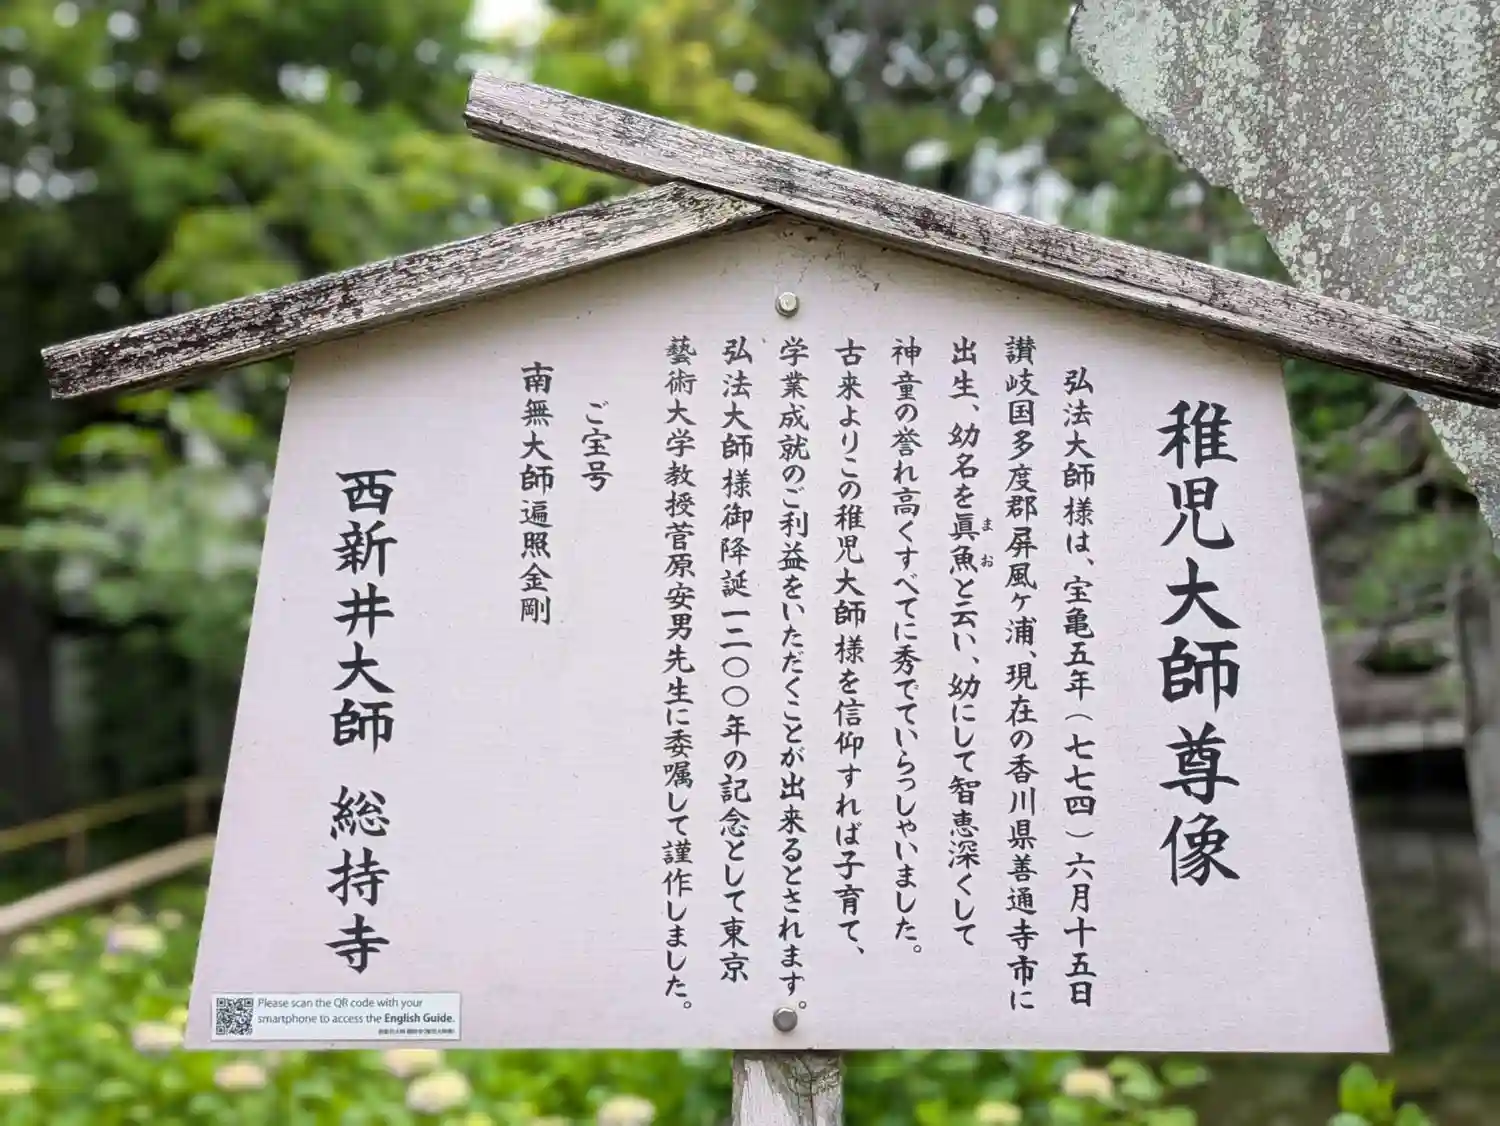 稚児大師尊像
弘法大師様は、宝亀五年(七七四)六月十五日
讃岐国多度郡屏風ヶ浦、現在の香川県善通寺市に
出生、幼名を眞魚と云い、幼にして智恵深くして
まお
神童の誉れ高くすべてに秀でていらっしゃいました。
古来よりこの稚児大師様を信仰すれば子育て、
学業成就のご利益をいただくことが出来るとされます。
弘法大師様御降誕一二〇〇年の記念として東京
藝術大学教授菅原安男先生に委嘱して謹作しました。
ご宝号
南無大師遍照金剛
西新井大師 総持寺
Please scan the QR code with your
smartphone to access the English Guide.